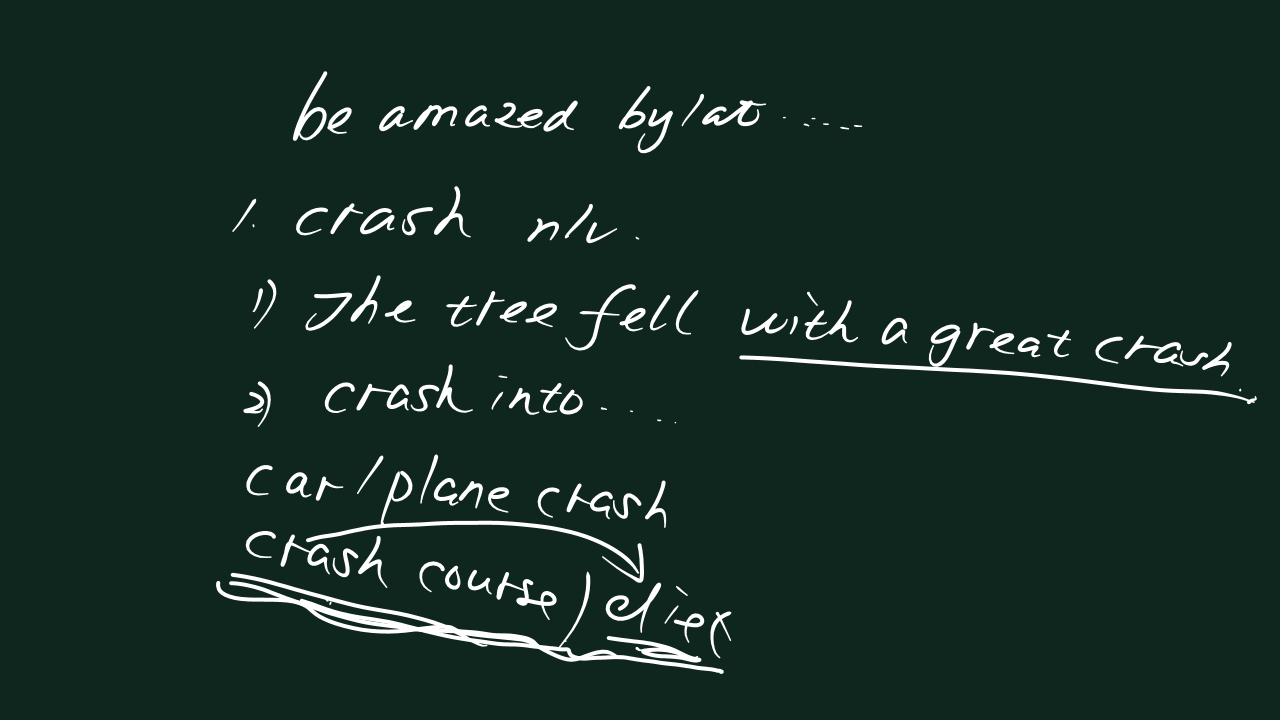 be amazed by/at .....
1. crash n/v.
1) The tree fell with a great crash.
2) crash into ....
car/plane crash
crash course/diet